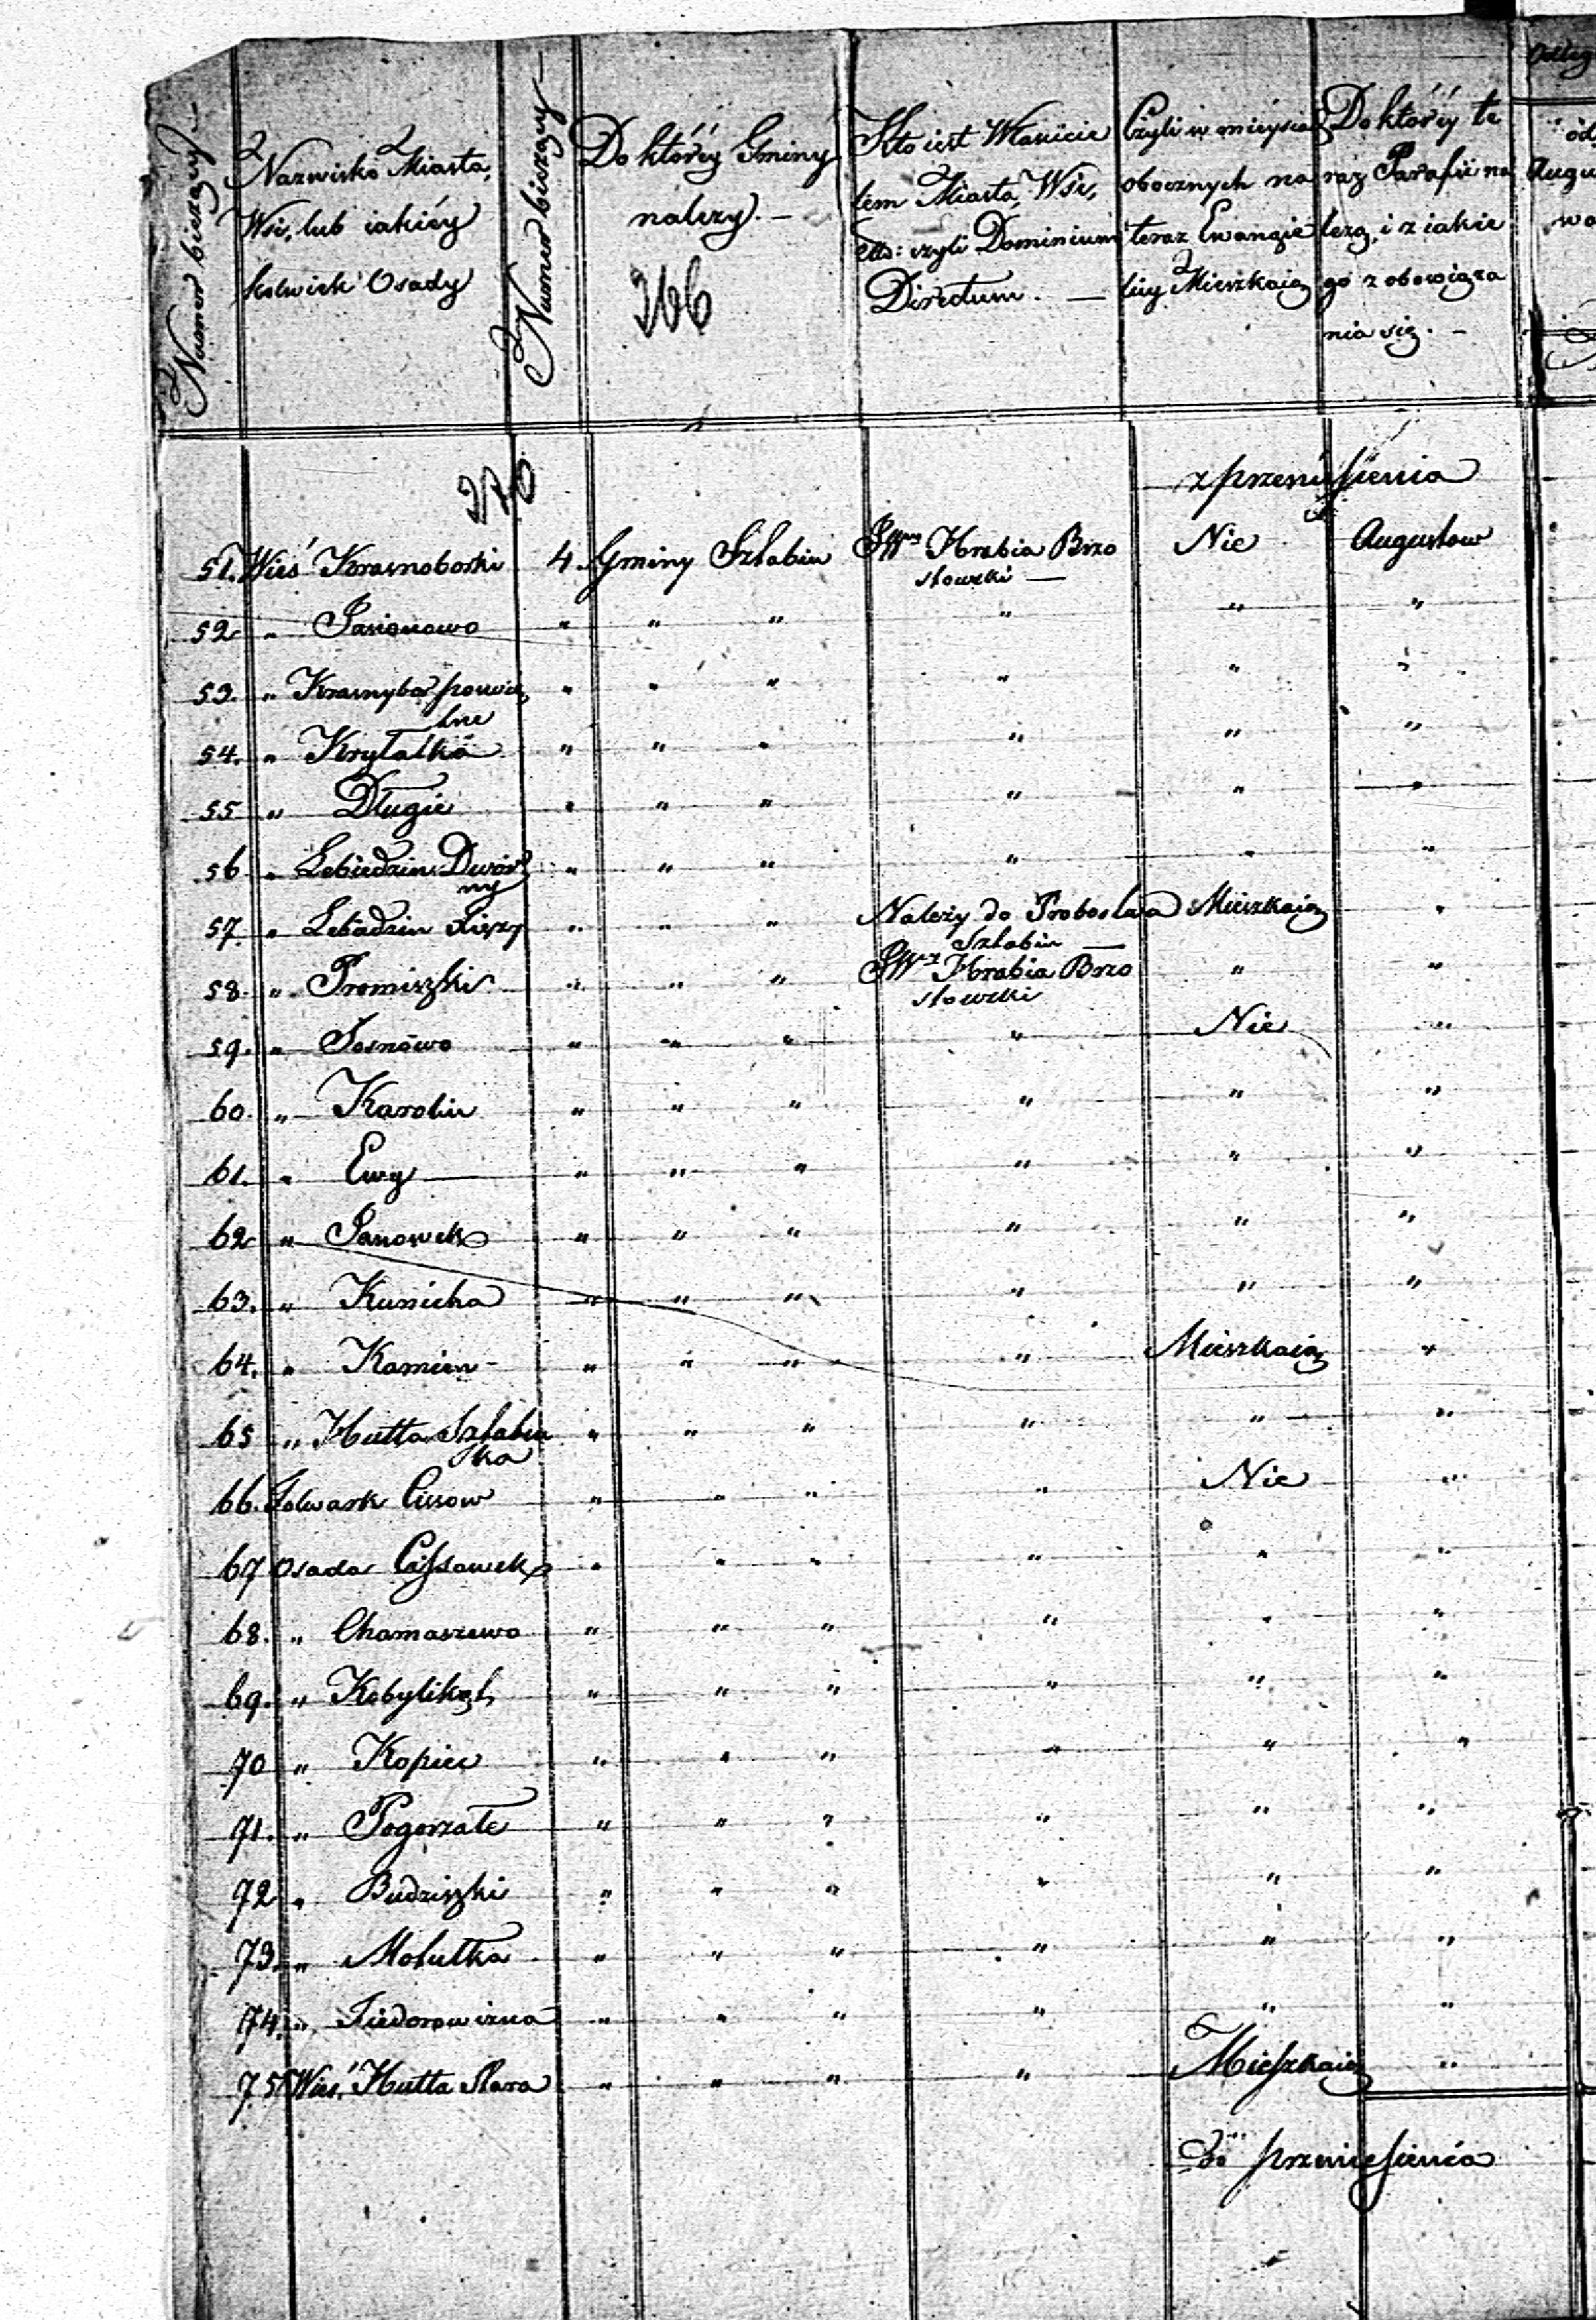 Numer bieżący —
Nazwisko Miasta,
Wsi, lub iakiéy
kolwiek Osady
Numer bieżący —
Do któréy Gminy
należy. —
266
Kto iest Właścicie
lem Miasta, Wsi,
etto: czyli Dominium
Directum. —
Czyli w mieyscach
obocznych na
teraz Ewangie
licy Mieszkaią
Do któréy te
raz Parafii na
leżą, i z iakie
go zobowiąza
nia się. —
od
Augu
wa
z przeniesienia
51. Wieś Krasnoborki 4. Gminy Sztabin JW Hrabia Brzo Nie Augustow
stowski —
52 " Jasionowo " " " " " "
53. " Krasnybor powia " " " " " "
tne
54. " Kryłatka " " " " " "
55 " Długie " " " " " "
56 " Lebiedzin Dwor " " " " " "
ny
57. " Lebiedzin Xięży " " " Należy do Probostwa Mieszkaią "
Sztabin —
58. " Promiszki " " " JW Hrabia Brzo " "
stowski
59. " Sosnowo " " " " Nie "
60. " Karolin " " " " " "
61. " Ewy — " " " " " "
62 " Janowek " " " " " "
63. " Kunicha " " " " " "
64. " Kamien - " " " " Mieszkaią "
65 " Hutta Sztabin " " " " " "
ska
66. Folwark Cissow " " " " Nie "
67 Osada Cissowek " " " " " "
68. " Chomaszewo " " " " " "
69. " Kobylikąt " " " " " "
70 " Kopiec " " " " " "
71. " Pogorzałe " " " " " "
72 " Budziszki " " " " " "
73. " Motułka " " " " " "
74. " Fiedorowizna " " " " " "
75 Wieś Hutta Stara " " " " Mieszkaią "
do przeniesienia